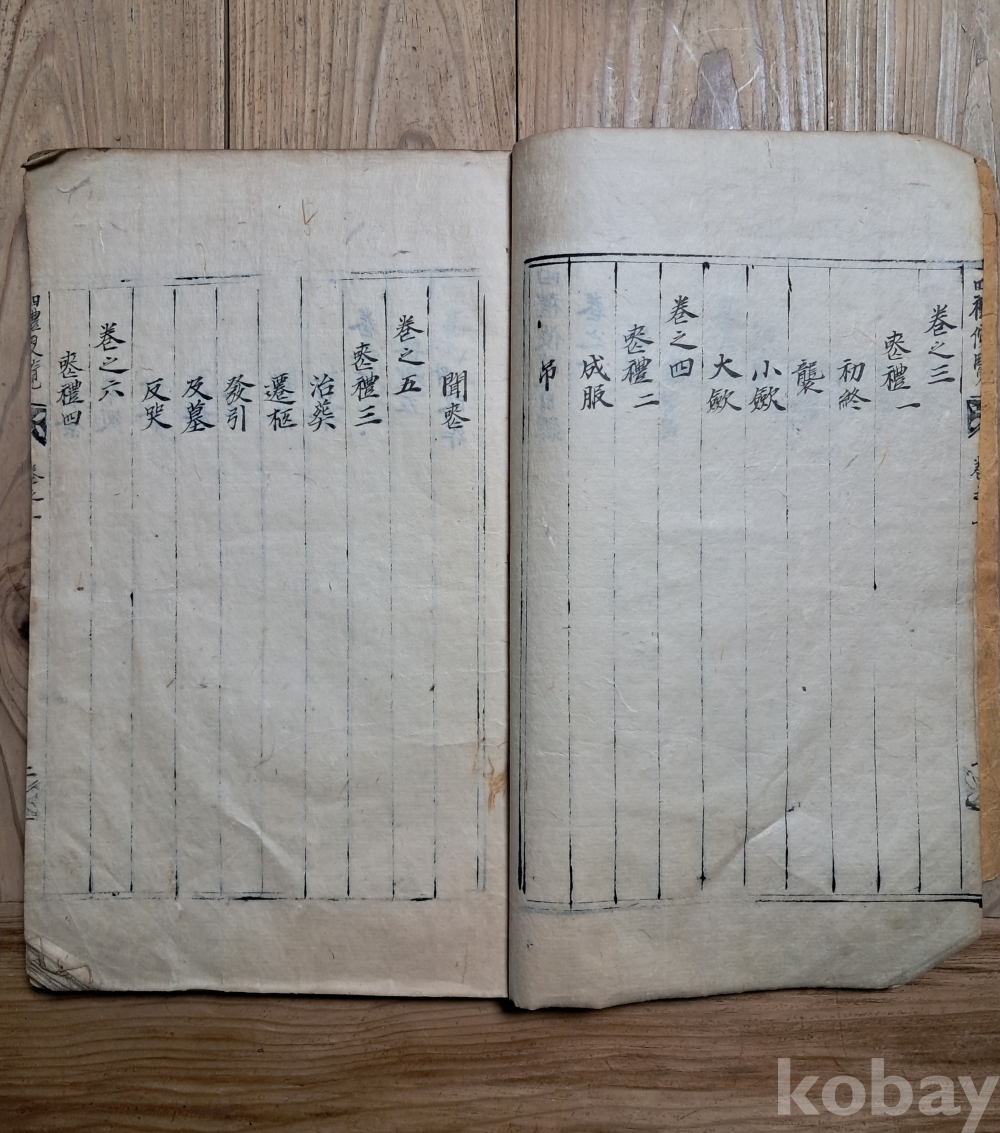 四禮便覽 卷之一
卷之三
喪禮一
初終
襲
小歛
大歛
卷之四
喪禮二
成服
吊
聞喪
卷之五
喪禮三
治葬
遷柩
發引
及墓
反哭
卷之六
喪禮四
四禮便覽 卷之一
kobay